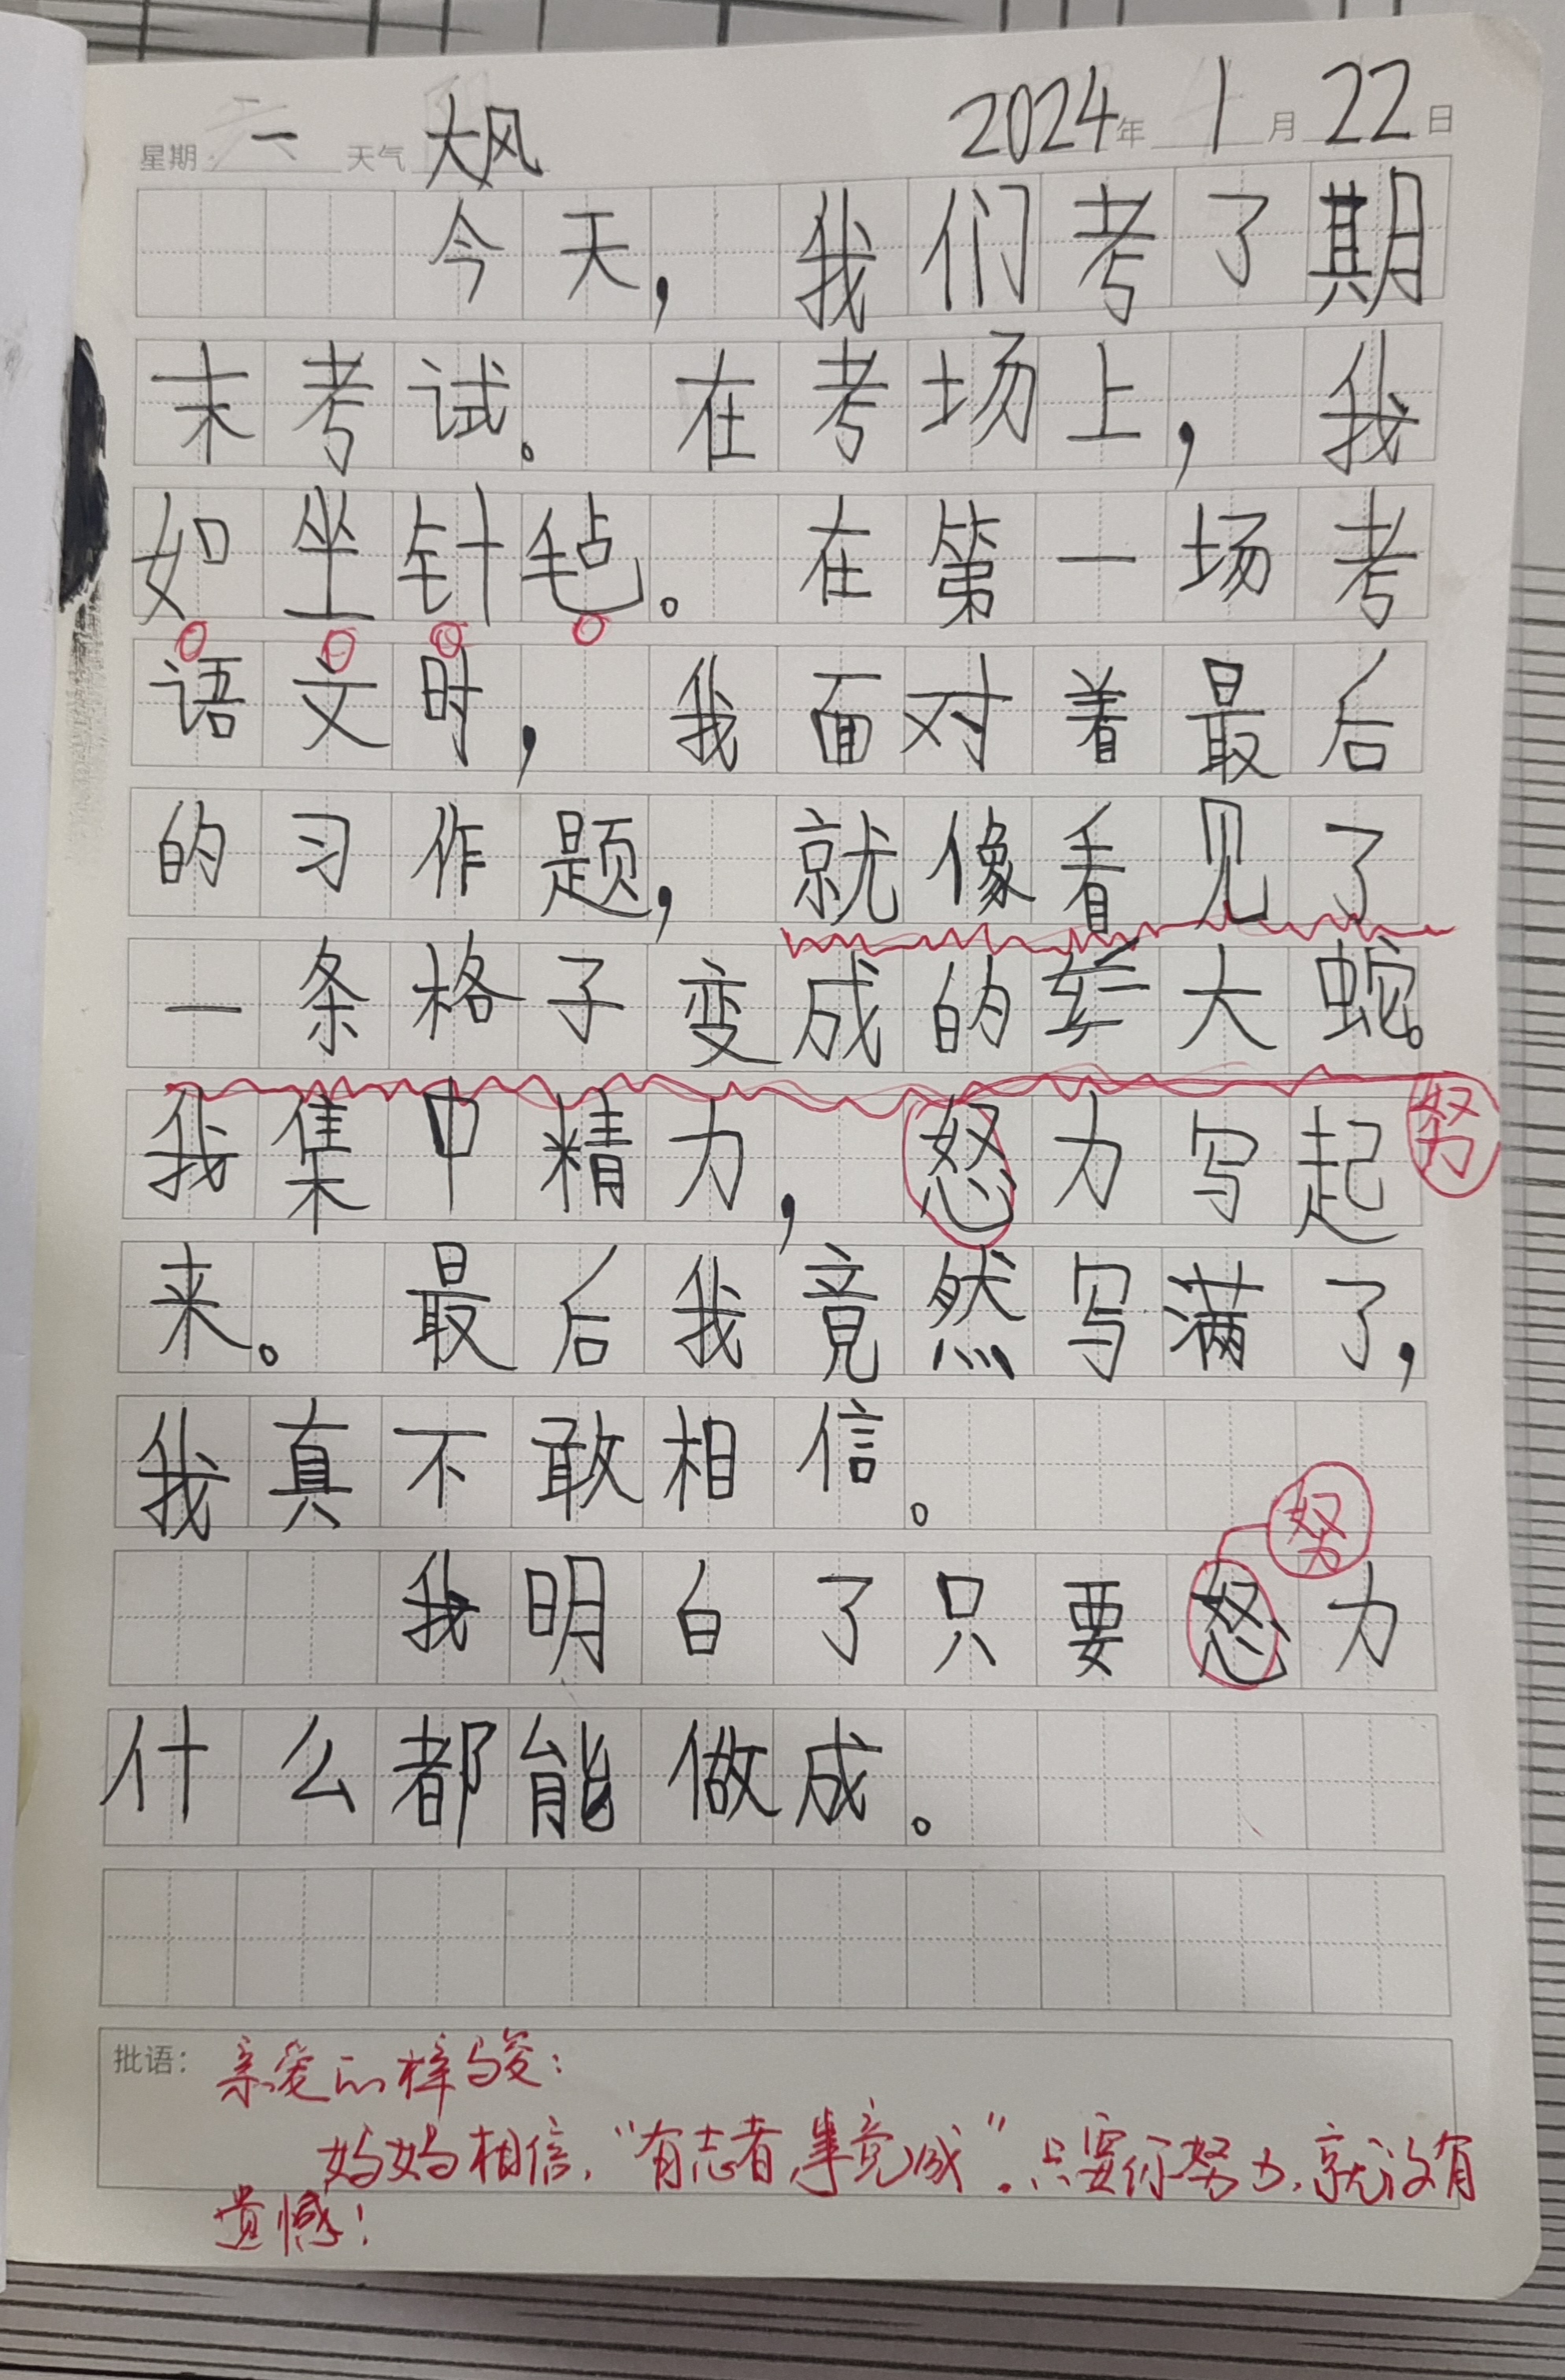 星期 一 天气 大风 2024年 1月 22日
今天，我们考了期
末考试。在考场上，我
如坐针毡。在第一场考
语文时，我面对着最后
的习作题，就像看见了
一条格子变成的大蛇。
我集中精力，怒力写起 努
来。最后我竟然写满了，
我真不敢相信。
努
我明白了只要怒力
什么都能做成。
批语：亲爱的梓骏：
妈妈相信，“有志者，事竟成”。只要你努力，就没有
遗憾！